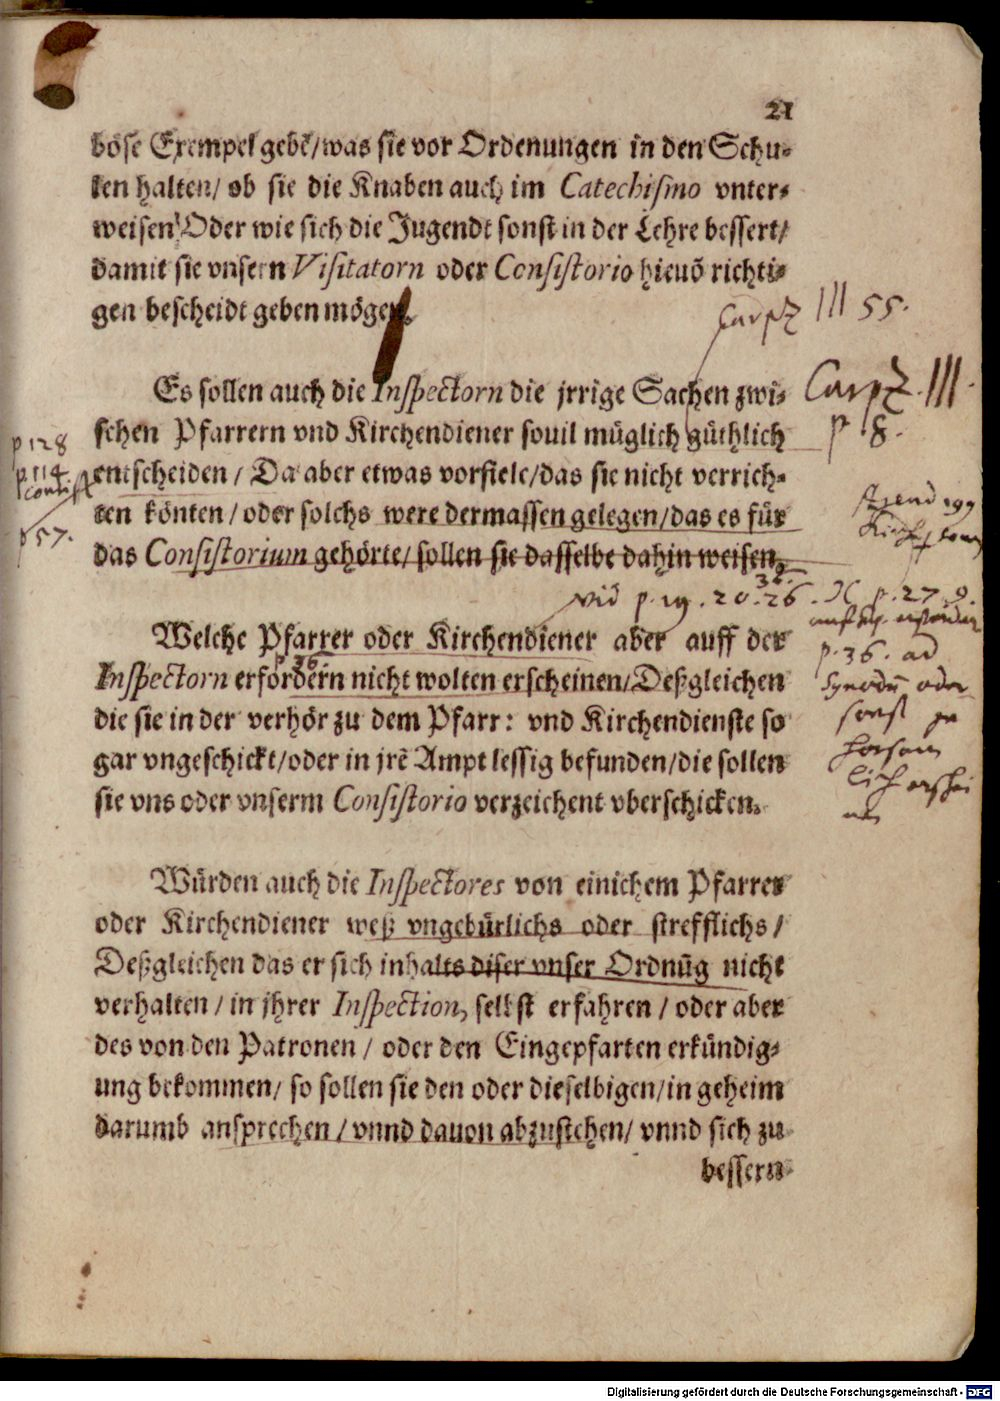 21
böse Exempel gebē/was sie vor Ordenungen in den Schu⸗
len halten/ ob sie die Knaben auch im Catechismo vnter⸗
weisen/Oder wie sich die Jugendt sonst in der Lehre bessert/
damit sie vnsern Visitatorn oder Consistorio hieuō richti⸗
gen bescheidt geben mögen.
Carpz III 55.
Es sollen auch die Inspectorn die jrrige Sachen zwi⸗
Carpz. III.
schen Pfarrern vnd Kirchendiener souil müglich gütlich
p. 8.
p 128
entscheiden / Da aber etwas vorfiele/das sie nicht verrich⸗
p. 114
ten könten / oder solchs were dermassen gelegen/das es für
das Consistorium gehörte/ sollen sie dasselbe dahin weisen.
p 57.
vid p. 19. 20. 26. p. 27. 9.
32.
Welche Pfarrer oder Kirchendiener aber auff der
p. 36.
p. 36. ad
Inspectorn erfordern nicht wolten erscheinen/Deßgleichen
Synodū oder
die sie in der verhör zu dem Pfarr: vnd Kirchendienste so
sonst
gar vngeschickt/oder in jrē Ampt lessig befunden/die sollen
sie vns oder vnserm Consistorio verzeichent vberschicken.
Würden auch die Inspectores von einichem Pfarrer
oder Kirchendiener weß vngebürlichs oder strefflichs /
Deßgleichen das er sich inhalts diser vnser Ordnūg nicht
verhalten / in jhrer Inspection, selbst erfahren / oder aber
des von den Patronen / oder den Eingepfarten erkündig⸗
ung bekommen/ so sollen sie den oder dieselbigen/in geheim
darumb ansprechen / vnnd dauon abzustehen/ vnnd sich zu
bessern
Digitalisierung gefördert durch die Deutsche Forschungsgemeinschaft - DFG